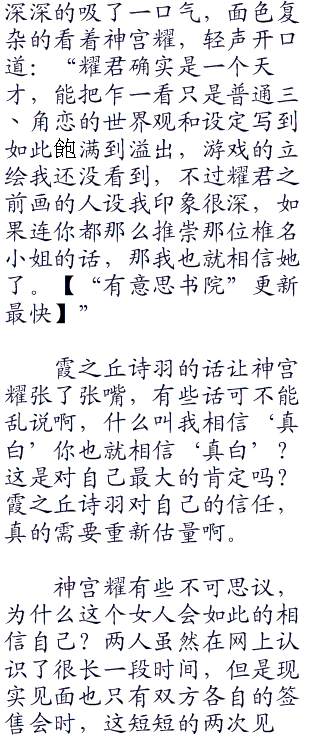 深深的吸了一口气，面色复
杂的看着神宫耀，轻声开口
道：“耀君确实是一个天
才，能把乍一看只是普通三
、角恋的世界观和设定写到
如此飽满到溢出，游戏的立
绘我还没看到，不过耀君之
前画的人设我印象很深，如
果连你都那么推崇那位椎名
小姐的话，那我也就相信她
了。【“有意思书院”更新
最快】”
霞之丘诗羽的话让神宫
耀张了张嘴，有些话可不能
乱说啊，什么叫我相信‘真
白’你也就相信‘真白’？
这是对自己最大的肯定吗？
霞之丘诗羽对自己的信任，
真的需要重新估量啊。
神宫耀有些不可思议，
为什么这个女人会如此的相
信自己？两人虽然在网上认
识了很长一段时间，但是现
实见面也只有双方各自的签
售会时，这短短的两次见